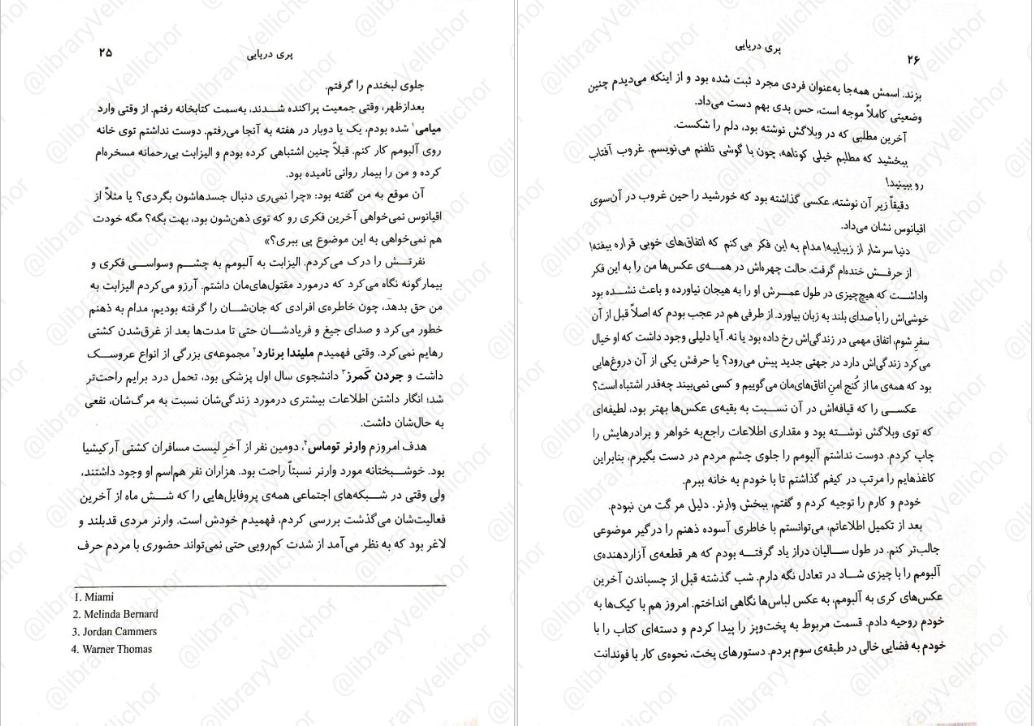 پری دریایی
۲۵
جلوی لبخندم را گرفتم.
بعدازظهر، وقتی جمعیت پراکنده شدند، به‌سمت کتابخانه رفتم. از وقتی وارد
میامی۱ شده بودم، یک یا دوبار در هفته به آنجا می‌رفتم. دوست نداشتم توی خانه
روی آلبومم کار کنم. قبلاً چنین اشتباهی کرده بودم و الیزابت بی‌رحمانه مسخره‌ام
کرده و من را بیمار روانی نامیده بود.
آن موقع به من گفته بود: «چرا نمی‌ری دنبال جسدهاشون بگردی؟ یا مثلاً از
اقیانوس نمی‌خواهی آخرین فکری رو که توی ذهن‌شون بود، بهت بگه؟ مگه خودت
هم نمی‌خواهی به این موضوع پی ببری؟»
نفرتش را درک می‌کردم. الیزابت به آلبومم به چشم وسواسی فکری و
بیمارگونه نگاه می‌کرد که درمورد مقتول‌های‌مان داشتم. آرزو می‌کردم الیزابت به
من حق بدهد، چون خاطره‌ی افرادی که جان‌شان را گرفته بودیم، مدام به ذهنم
خطور می‌کرد و صدای جیغ و فریادشان حتی تا مدت‌ها بعد از غرق‌شدن کشتی
رهایم نمی‌کرد. وقتی فهمیدم ملیندا برنارد۲ مجموعه‌ی بزرگی از انواع عروسک
داشت و جردن کَمرز۳ دانشجوی سال اول پزشکی بود، تحمل درد برایم راحت‌تر
شد؛ انگار داشتن اطلاعات بیشتری درمورد زندگی‌شان نسبت به مرگ‌شان، نفعی
به حال‌شان داشت.
هدف امروزم وارنر توماس۴، دومین نفر از آخرِ لیست مسافران کشتی آرکیشیا
بود. خوشبختانه مورد وارنر نسبتاً راحت بود. هزاران نفر هم‌اسم او وجود داشتند،
ولی وقتی در شبکه‌های اجتماعی همه‌ی پروفایل‌هایی را که شش ماه از آخرین
فعالیت‌شان می‌گذشت بررسی کردم، فهمیدم خودش است. وارنر مردی قدبلند و
لاغر بود که به نظر می‌آمد از شدت کم‌رویی حتی نمی‌تواند حضوری با مردم حرف
1. Miami
2. Melinda Bernard
3. Jordan Cammers
4. Warner Thomas
پری دریایی
۲۶
بزند. اسمش همه‌جا به‌عنوان فردی مجرد ثبت شده بود و از اینکه می‌دیدم چنین
وضعیتی کاملاً موجه است، حس بدی بهم دست می‌داد.
آخرین مطلبی که در وبلاگش نوشته بود، دلم را شکست.
ببخشید که مطلبم خیلی کوتاهه، چون با گوشی تلفنم می‌نویسم. غروب آفتاب
رو ببینید!
دقیقاً زیر آن نوشته، عکسی گذاشته بود که خورشید را حین غروب در آن‌سوی
اقیانوس نشان می‌داد.
دنیا سرشار از زیباییه! مدام به این فکر می‌کنم که اتفاق‌های خوبی قراره بیفته!
از حرفش خنده‌ام گرفت. حالت چهره‌اش در همه‌ی عکس‌ها من را به این فکر
واداشت که هیچ‌چیزی در طول عمرش او را به هیجان نیاورده و باعث نشده بود
خوشی‌اش را با صدای بلند به زبان بیاورد. از طرفی هم در عجب بودم که اصلاً قبل از آن
سفرِ شوم، اتفاق مهمی در زندگی‌اش رخ داده بود یا نه. آیا دلیلی وجود داشت که او خیال
می‌کرد زندگی‌اش دارد در جهتی جدید پیش می‌رود؟ یا حرفش یکی از آن دروغ‌هایی
بود که همه‌ی ما از کُنج امنِ اتاق‌های‌مان می‌گوییم و کسی نمی‌بیند چه‌قدر اشتباه است؟
عکسی را که قیافه‌اش در آن نسبت به بقیه‌ی عکس‌ها بهتر بود، لطیفه‌ای
که توی وبلاگش نوشته بود و مقداری اطلاعات راجع‌به خواهر و برادرهایش را
چاپ کردم. دوست نداشتم آلبومم را جلوی چشم مردم در دست بگیرم، بنابراین
کاغذهایم را مرتب در کیفم گذاشتم تا با خودم به خانه ببرم.
خودم و کارم را توجیه کردم و گفتم، ببخش وارنر. دلیل مرگت من نبودم.
بعد از تکمیل اطلاعاتم، می‌توانستم با خاطری آسوده ذهنم را درگیر موضوعی
جالب‌تر کنم. در طول سالیان دراز یاد گرفته بودم که هر قطعه‌ی آزاردهنده‌ی
آلبومم را با چیزی شاد در تعادل نگه دارم. شب گذشته قبل از چسباندن آخرین
عکس‌های کری به آلبومم، به عکس لباس‌ها نگاهی انداختم. امروز هم با کیک‌ها به
خودم روحیه دادم. قسمت مربوط به پخت‌وپز را پیدا کردم و دسته‌ای کتاب را با
خودم به فضایی خالی در طبقه‌ی سوم بردم. دستورهای پخت، نحوه‌ی کار با فوندانت
@libraryVellichor